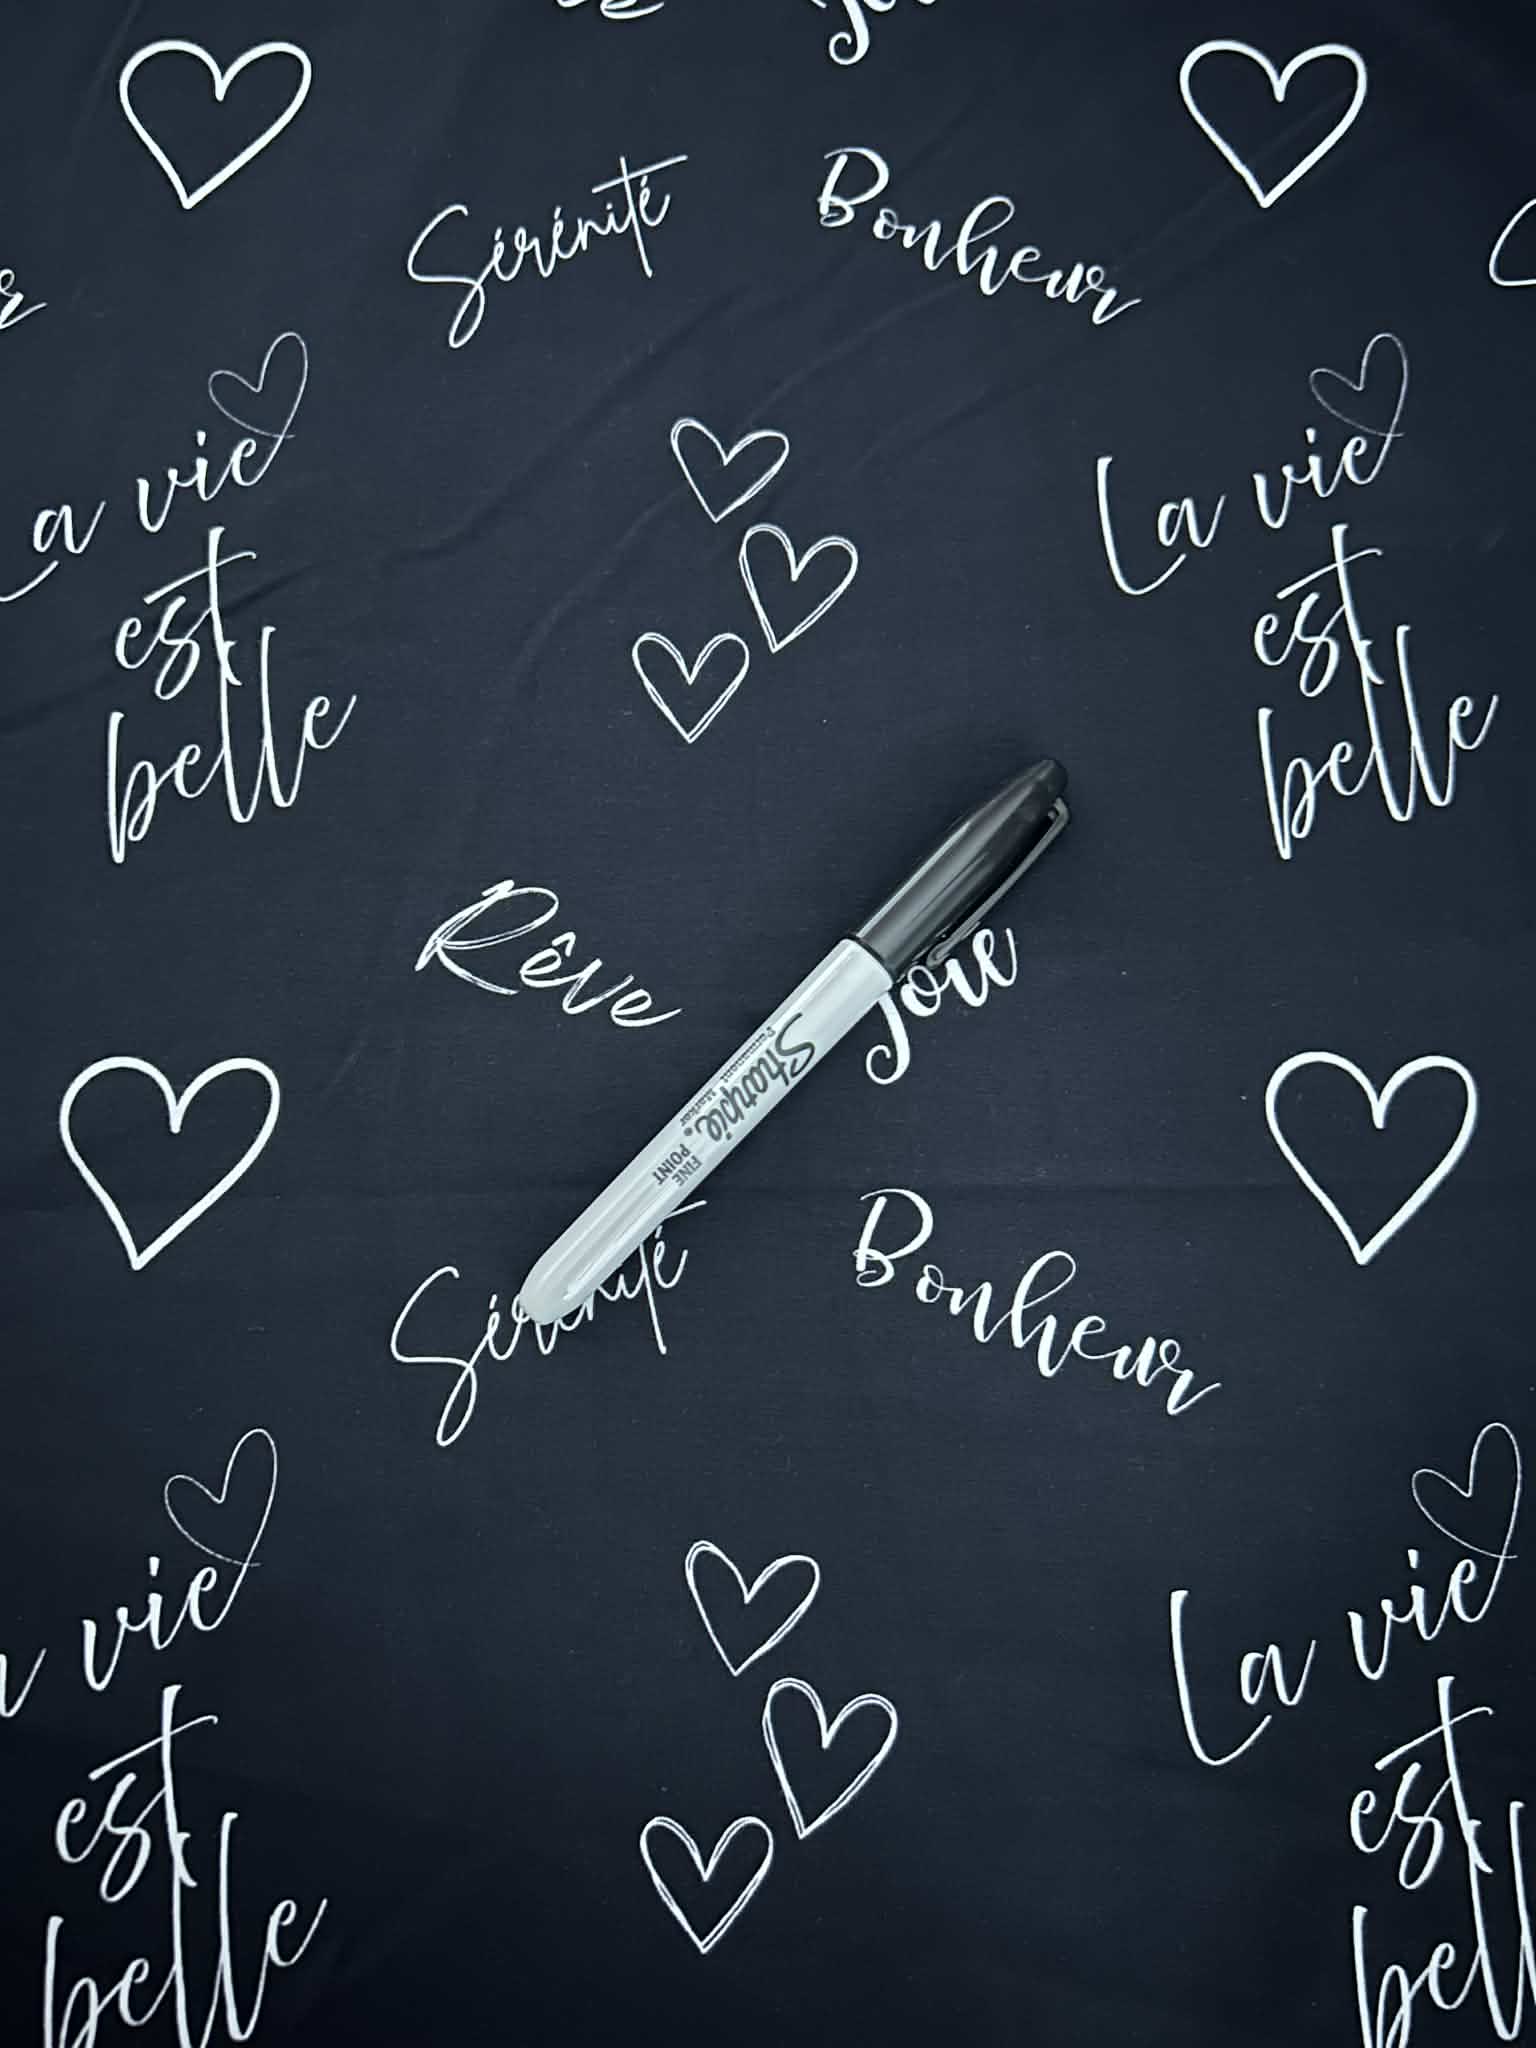 Sérénité
Bonheur
La vie
est
belle
La vie
est
belle
Rêve
Joie
Sharpie
Permanent Marker
FINE
POINT
Sérénité
Bonheur
vie
est
belle
La vie
est